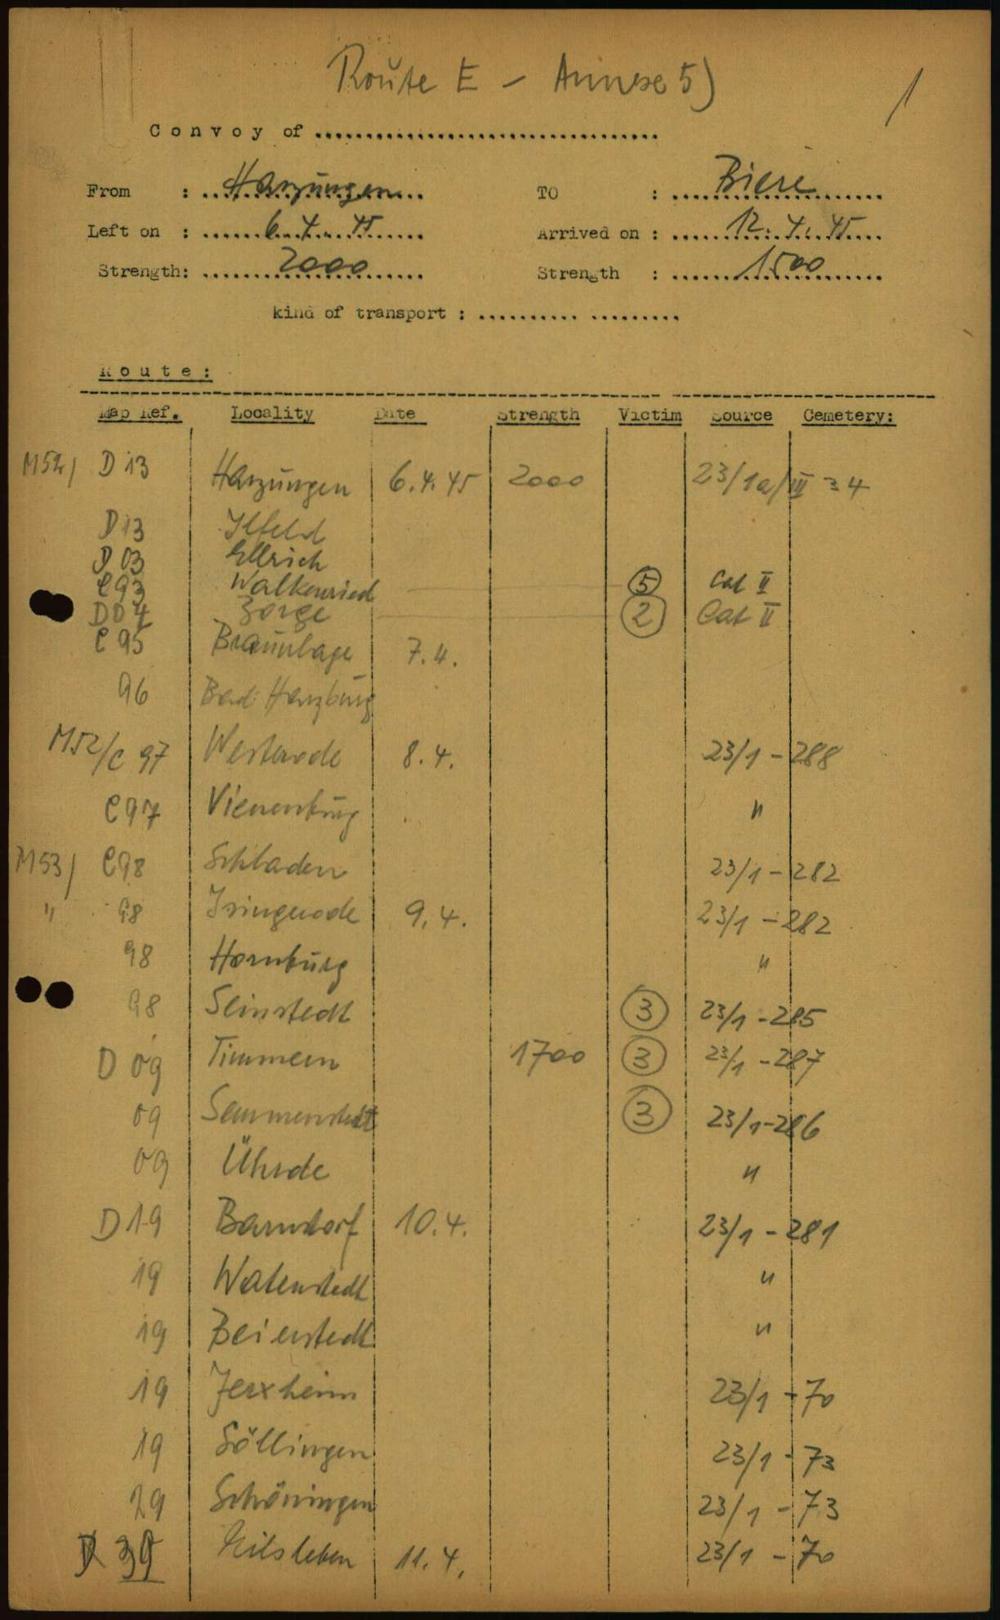 Route E - Annexe 5)
1
Convoy of ..................................
From : Harzungen TO : Biere
Left on : 6.4.45 Arrived on : 12.4.45
Strength: 2000 Strength : 1500
kind of transport : .......... .........
Route:
Map Ref. Locality Date Strength Victim Source Cemetery:
M52/ D 13 Harzungen 6.4.45 2000 23/1a/III 34
D 13 Ilfeld
D 03 Ellrich
C 93 Walkenried 5 Cat II
D 04 Zorge 2 Cat II
C 95 Braunlage 7.4.
96 Bad Harzburg
M52/C 97 Westerode 8.4. 23/1 - 288
C 97 Vienenburg "
M53/ C98 Schladen 23/1 - 282
" 98 Isingerode 9.4. 23/1 - 282
98 Hornburg "
98 Seinstedt 3 23/1 - 285
D 09 Timmern 1700 3 23/1 - 287
09 Semmenstedt 3 23/1 - 286
09 Ührde "
D 19 Barnstorf 10.4. 23/1 - 281
19 Watenstedt "
19 Beierstedt "
19 Jerxheim 23/1 - 70
19 Söllingen 23/1 - 73
29 Schöningen 23/1 - 73
D 39 Eilsleben 11.4. 23/1 - 70